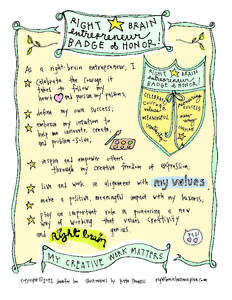 RIGHT BRAIN
entrepreneur
BADGE of HONOR!
As a right-brain entrepreneur, I
celebrate the courage it
takes to follow my
heart and pursue my passions,
define my own success,
embrace my intuition to
help me innovate, create,
and problem-solve,
inspire and empower others
through my creative freedom of expression,
live and work in alignment with my values
make a positive, meaningful impact with my business,
play an important role in pioneering a new
way of working that values creativity
and
Right brain
MY CREATIVE WORK MATTERS
RIGHT BRAIN
entrepreneur
BADGE of HONOR!
CELEBRATE
values
Copyright Jennifer Lee